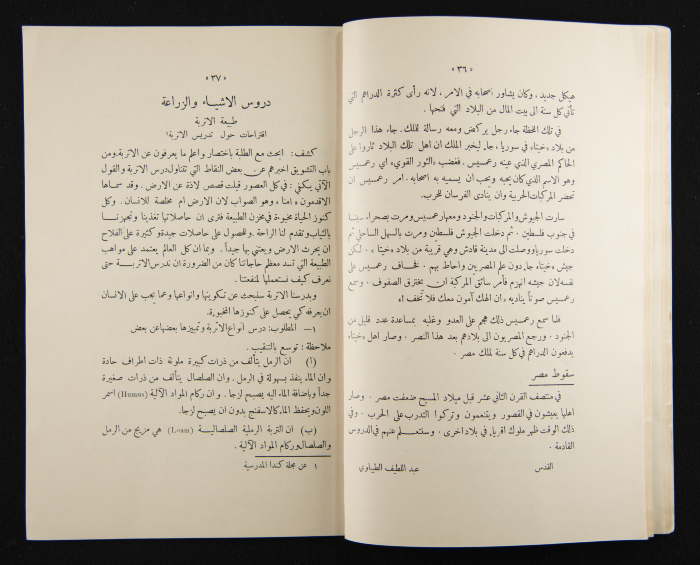 «٣٦»
هيكل جديد ، وكان يشاور اصحابه في الامر ، لانه رأى كثرة الدراهم التي
تأتي كل سنة الى بيت المال من البلاد التي فتحها .
في تلك اللحظة جاء رجل يركض ومعه رسالة للملك . جاء هذا الرجل
من بلاد «خيتا» في سوريا ، جاء ليخبر الملك ان اهل تلك البلاد ثاروا على
الحاكم المصري الذي عينه رعمسيس . فغضب «الثور القوي» اي رعمسيس
وهو الاسم الذي كان يحبه ويحب ان يسميه به اصحابه . امر رعمسيس ان
تحضر المركبات الحربية وان ينادى الفرسان للحرب .
سارت الجيوش والمركبات والجنود ومعها رعمسيس ومرت بصحراء سينا
في جنوب فلسطين . ثم دخلت الجيوش فلسطين ومرت بالسهل الساحلي ثم
دخلت سوريا ووصلت الى مدينة قادش وهي قريبة من بلاد «خيتا» . لكن
جيش «خيتا» جاء دون علم المصريين واحاط بهم . فخاف رعمسيس على
نفسه لان جيشه انهزم فأمر سائق المركبة ان يخترق الصفوف . وسمع
رعمسيس صوتاً يناديه «ان الهك آمون معك فلا تخف !»
فلما سمع رعمسيس ذلك هجم على العدو وغلبه بمساعدة عدد قليل من
الجنود . ورجع المصريون الى بلادهم بعد هذا النصر . وصار اهل «خيتا»
يدفعون الدراهم في كل سنة لملك مصر .
سقوط مصر
في منتصف القرن الثاني عشر قبل ميلاد المسيح ضعفت مصر . وصار
اهلها يعيشون في القصور ويتنعمون وتركوا التدرب على الحرب . وفي
ذلك الوقت ظهر ملوك اقوياء في بلاد اخرى . وستتعلم عنهم في الدروس
القادمة .
القدس عبد اللطيف الطيباوي
«٣٧»
دروس الاشياء والزراعة
طبيعة الاتربة
اقتراحات حول تدريس الاتربة ١
كشف : ابحث مع الطلبة باختصار واعلم ما يعرفون عن الاتربة ومن
باب التشويق اخبرهم عن بعض النقاط التي تتناول درس الاتربة والقول
الآتي يكفي : في كل العصور قيلت قصص لاذة عن الارض . وقد سماها
الاقدمون «امنا» وهو الصواب لان الارض ام مخلصة للانسان . وكل
كنوز الحياة مخبوءة في مخزن الطبيعة فترى ان حاصلاتها تغذينا وتجهزنا
بالثياب وتقدم لنا الراحة . وللحصول على حاصلات جيدة وكثيرة على الفلاح
ان يحرث الارض ويعتني بها جيداً . وبما ان كل العالم يعتمد على مواهب
الطبيعة التي تسد معظم حاجاتنا كان من الضرورة ان ندرس الاتربة حتى
نعرف كيف نستعملها لمنفعتنا .
وبدرسنا الاتربة سنبحث عن تكوينها وانواعها وعما يجب على الانسان
ان يعرفه كي يحصل على كنوزها المخبوءة .
١— المطلوب : درس انواع الاتربة وتمييزها بعضها عن بعض
ملاحظة : توسع بالتنقيب .
(أ) ان الرمل يتألف من ذرات كبيرة ملونة ذات اطراف حادة
وان الماء ينفذ بسهولة في الرمل . وان الصلصال يتألف من ذرات صغيرة
جداً وباضافة الماء اليه يصبح لزجا . وان ركام المواد الآلية (Humus) اسمر
اللون ويحفظ الماء كالاسفنج بدون ان يصبح لزجا.
(ب) ان التربة الرملية الصلصالية (Loam) هي مزيج من الرمل
والصلصال وركام المواد الآلية .
١ عن مجلة كندا المدرسية